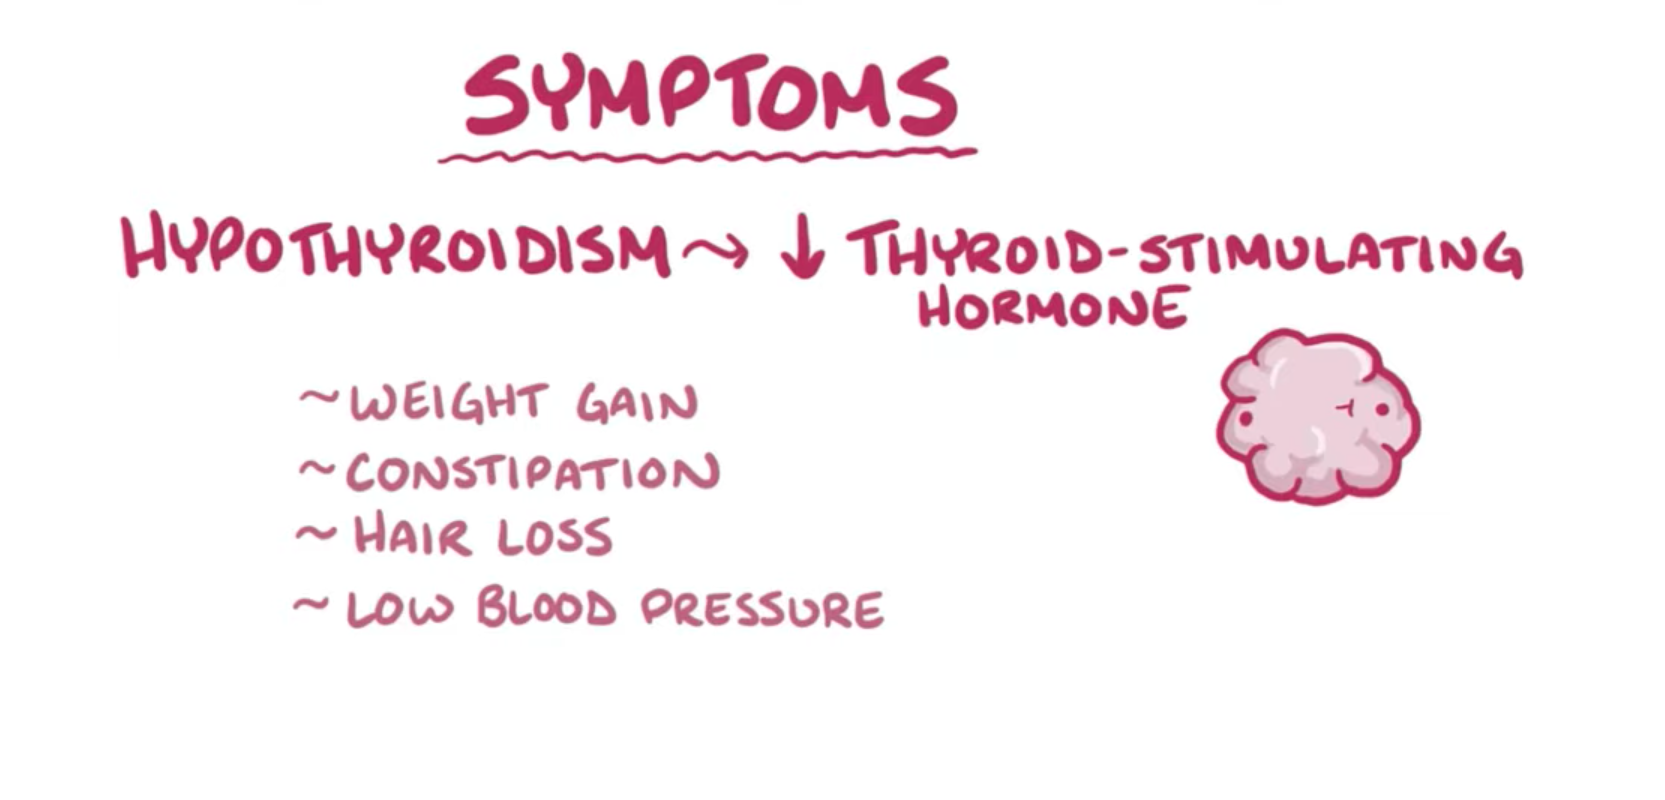 SYMPTOMS
HYPOTHYROIDISM ⤳ ↓ THYROID-STIMULATING
HORMONE
~ WEIGHT GAIN
~ CONSTIPATION
~ HAIR LOSS
~ LOW BLOOD PRESSURE